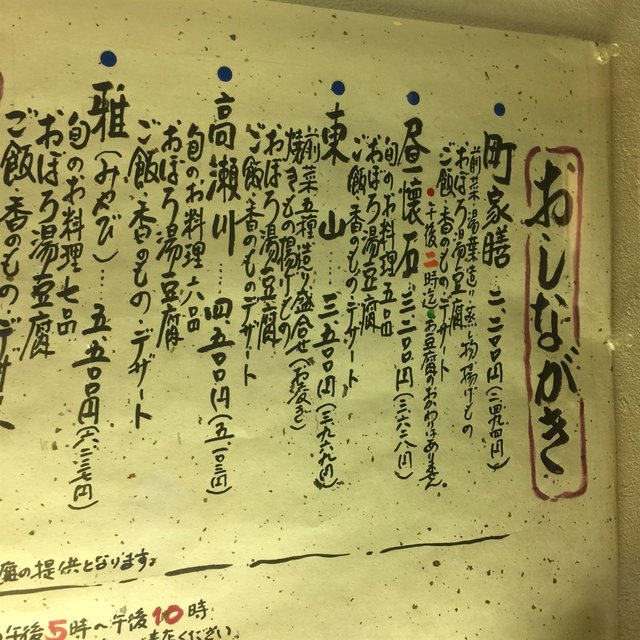 おしながき
町家膳 二、二〇〇円(二四九四円)
前菜 湯葉造り 蒸し物 揚げもの
おぼろ湯豆腐
ご飯・香のもの デザート
昼懐石 三、二〇〇円(三六二八円)
・午後二時迄・お豆腐のおかわりはありません
旬のお料理五品
おぼろ湯豆腐
ご飯・香のもの デザート
東山…三、五〇〇円(三九六九円)
前菜五種 造り盛合せ
焼きもの 揚げもの
おぼろ湯豆腐
ご飯・香のもの デザート
高瀬川…四、五〇〇円(五一〇三円)
旬のお料理六品
おぼろ湯豆腐
ご飯・香のもの デザート
雅(みやび)…五、五〇〇円(六二三七円)
旬のお料理七品
おぼろ湯豆腐
ご飯・香のもの・デザート
の提供となります。
午後5時〜午後10時
ください。